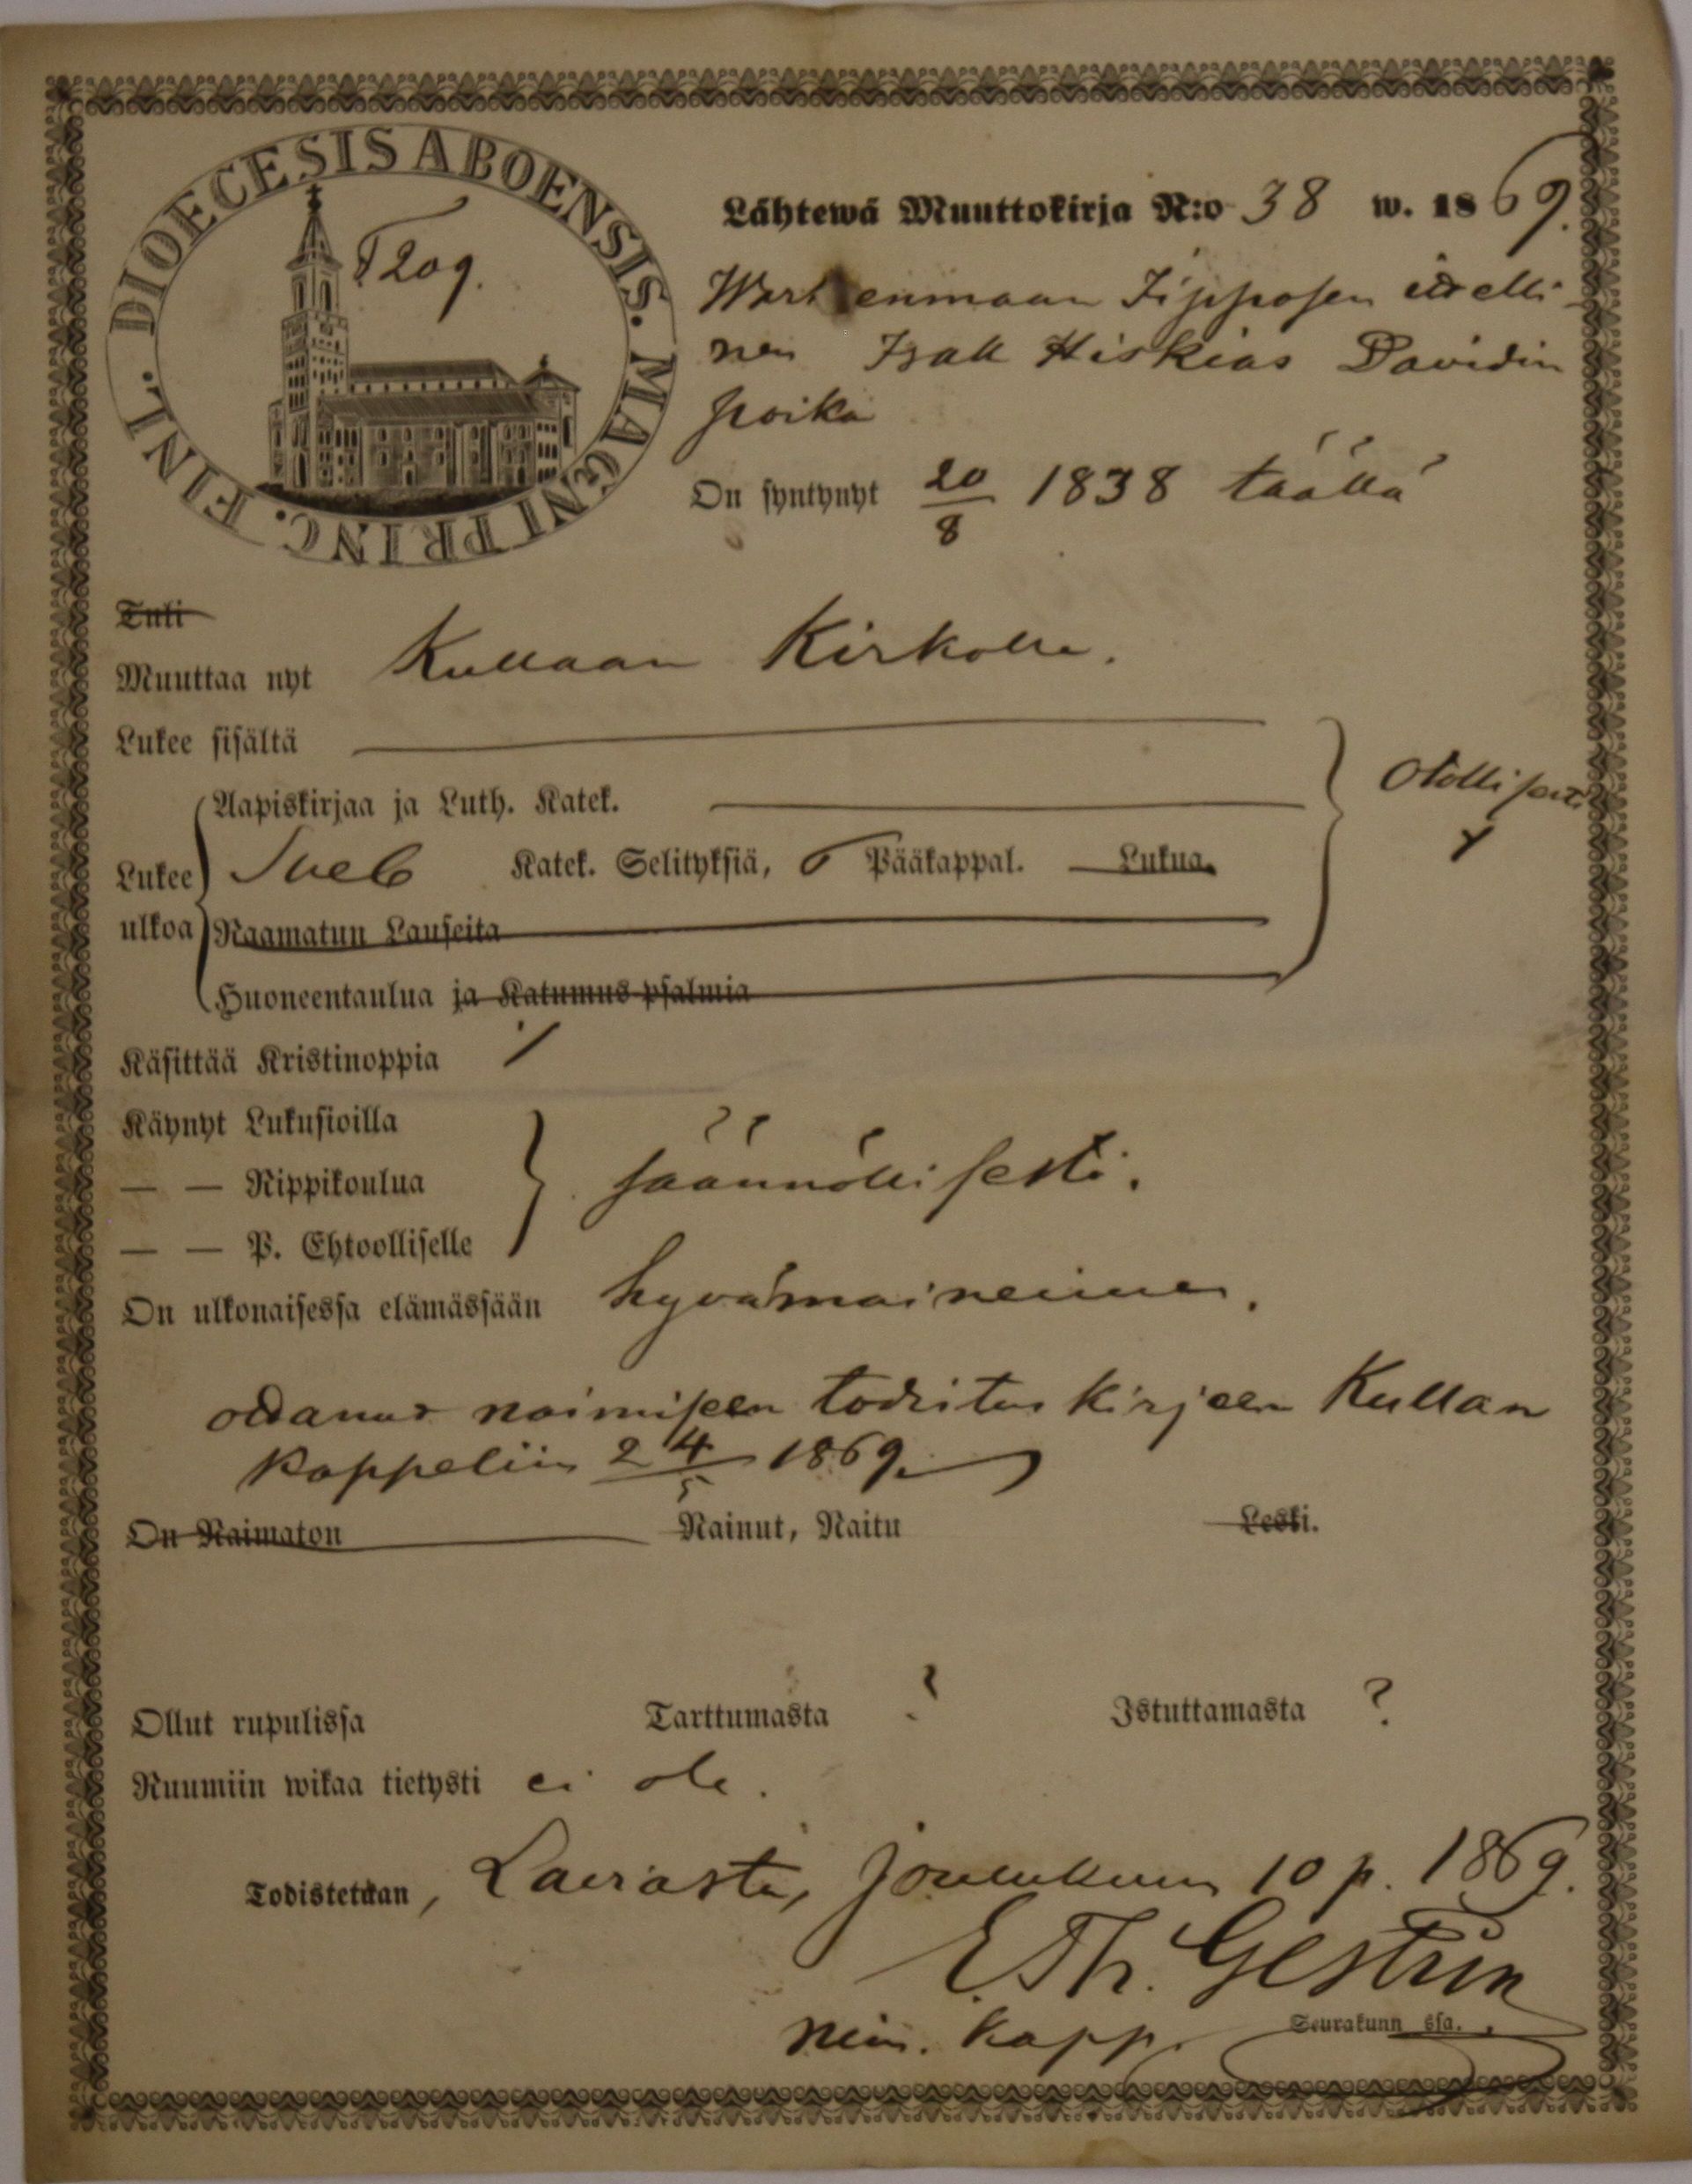 DIOECESIS ABOENSIS. MAGNI PRINC. FINL.
T 209.
Lähtewä Muuttokirja N:o 38 w. 1869.
enmaan itselli-
nen Isak Hiskias Davidin
poika
On syntynyt 20/8 1838 täällä
Tuli
Muuttaa nyt Kullaan Kirkolle.
Lukee sisältä
Aapiskirjaa ja Luth. Katek.
Otollisesti
Lukee Sveb Katek. Selityksiä, 6 Pääkappal. Lukua.
ulkoa Raamatun Lauseita
Huoneentaulua ja Katumus-psalmia
Käsittää Kristinoppia
Käynyt Lukusioilla
— — Rippikoulua säännöllisesti.
— — P. Ehtoolliselle
On ulkonaisessa elämässään hyvämaineinen.
ottanut naimiseen todistus kirjeen Kullan
Kappeliin 24/5 1869.
On Naimaton Nainut, Naitu Leski.
Ollut rupulissa Tarttumasta ? Istuttamasta ?
Ruumiin wikaa tietysti ei ole.
Todistetaan, Laviasta, joulukuun 10 p. 1869.
E. Th. Gestrin
Kapp. Seurakunn ssa.